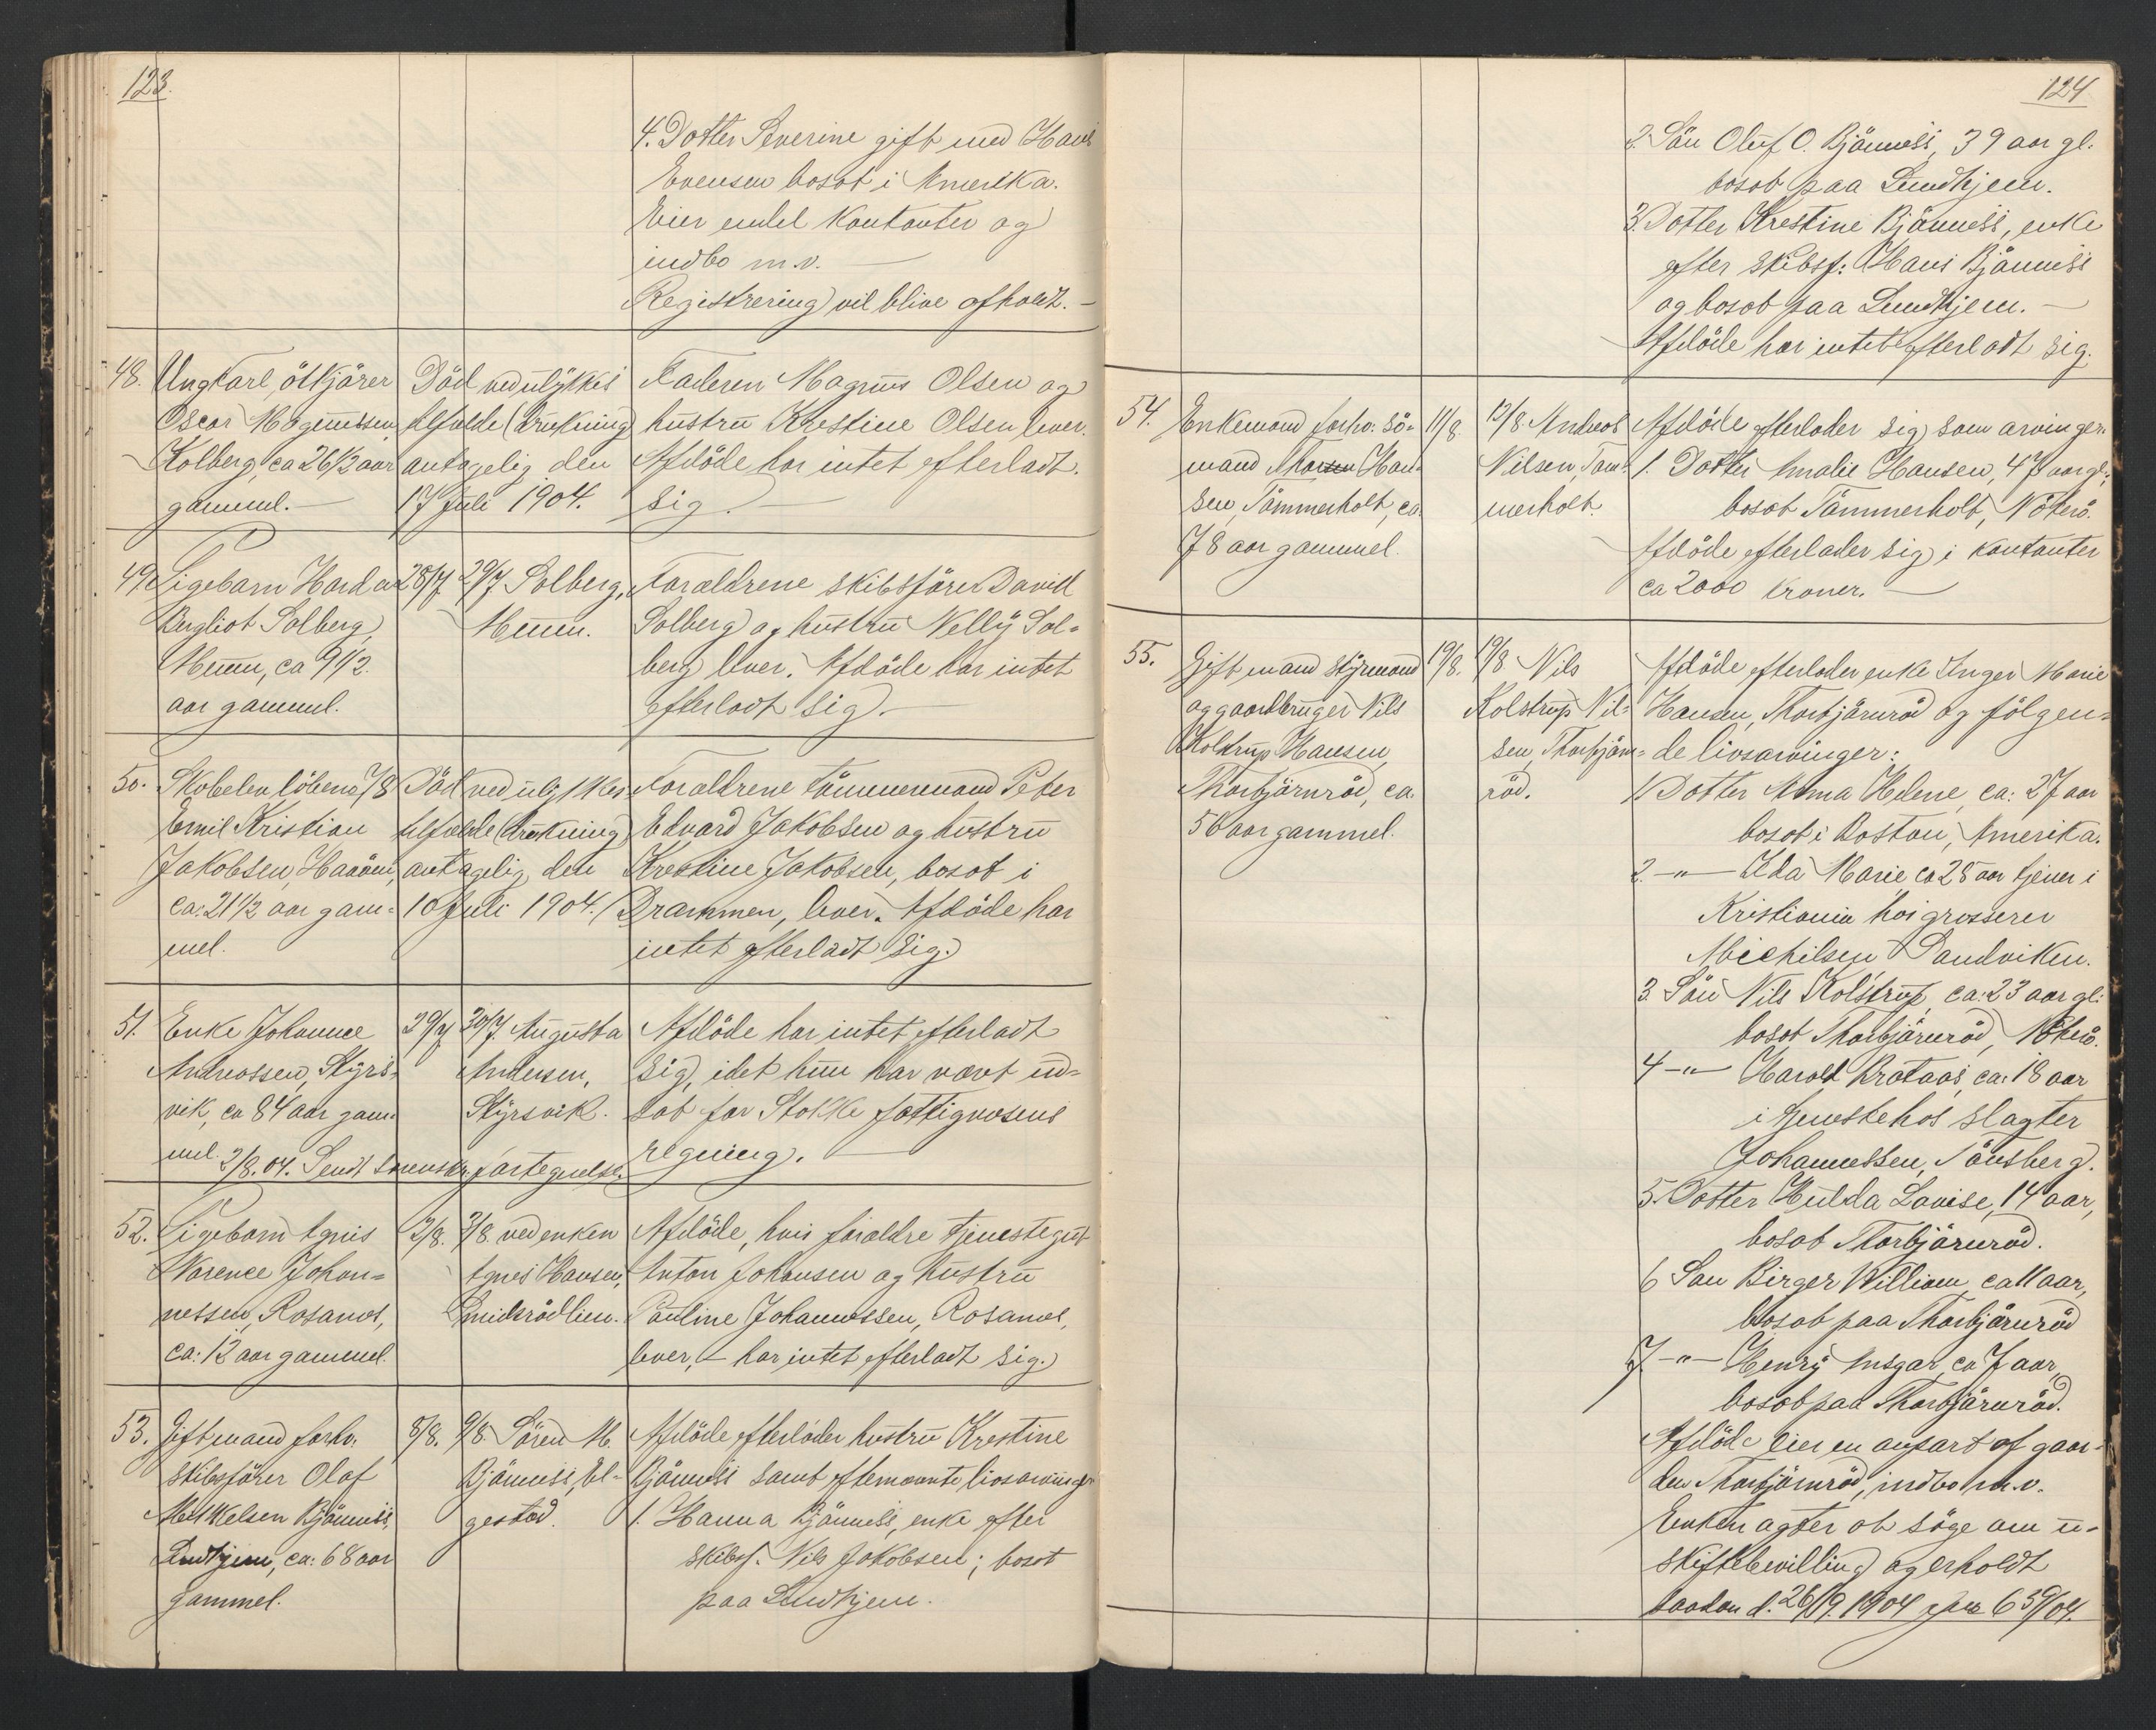 123.
4. Datter Severine gift med Hans
Evensen bosat i Amerika.
Eier endel Kontanter og
indbo m.v.
Registrering vil blive afholdt.
48. Ungkarl,
Oscar Magnussen
Kolberg, ca 26 1/2 aar
gammel.
Död ved ulykkes
tilfælde (drukning)
antagelig den
17 Juli 1904.
Faderen Magnus Olsen og
hustru Krestine Olsen lever.
Afdöde har intet efterladt
sig.
49. Pigebarn
Bergliot Solberg,
ca 9 1/2
aar gammel.
28/7
29/7 Solberg,
Forældrene skibsförer David
Solberg og hustru Nelly Sol=
berg lever. Afdöde har intet
efterladt sig.
50.
Emil Kristian
Jakobsen,
ca: 21 1/2 aar gam=
mel.
Död ved ulykkes
tilfælde (drukning)
antagelig den
10 Juli 1904.
Forældrene tömmermand Peter
Edvard Jakobsen og hustru
Krestine Jakobsen, bosat i
Drammen, lever. Afdöde har
intet efterladt sig.
51. Enke Johanne
Andreassen, Styrs=
vik, ca 84 aar gam=
mel.
3/8.04. Sendt fortegnelse.
29/7
30/7. Augusta
Andersen,
Styrsvik.
Afdöde har intet efterladt
sig, idet hun har vært ud=
sat for Stokke fattigvæsens
regning.
52. Pigebarn Agnes
Johan=
nessen, Rosanes,
ca: 12 aar gammel.
2/8.
3/8 ved enken
Agnes Hansen,
Smidsrödlien.
Afdöde, hvis forældre tjenestegut
Anton Johansen og hustru
Pauline Johannessen, Rosanes,
lever, – har intet efterladt sig.
53. Gift mand forhv.
skibsförer Olaf
Mikkelsen Bjönness,
Sundhjem, ca: 68 aar
gammel.
8/8.
9/8. Sören M.
Bjönness, El=
gestad.
Afdöde efterlader hustru Krestine
Bjönness samt efternævnte livsarvinger
1. Hanna Bjönness, enke efter
skibsf. Nils Jakobsen; bosat
paa Sundhjem.
124
2. Sön Oluf O. Bjönness, 39 aar gl.
bosat paa Sundhjem.
3. Datter Krestine Bjönness, enke
efter skibsf: Hans Bjönness
og bosat paa Sundhjem.
Afdöde har intet efterladt sig.
54. Enkemand forhv. sö=
mand Han=
sen, Tömmerholt, ca.
78 aar gammel.
11/8.
12/8. Andreas
Nilsen, Töm=
merholt.
Afdöde efterlader sig som arvinger:
1. Datter Amalie Hansen, 47 aar gl.;
bosat Tömmerholt, Nöterö.
Afdöde efterlader sig i kontanter
ca 2000 kroner.
55. Gift mand styrmand
og gaardbruger Nils
Kolstrup Hansen,
Thorbjörnröd, ca.
56 aar gammel.
19/8.
19/8 Nils
Kolstrup Nil=
sen, Thorbjörn=
röd.
Afdöde efterlader enke Inger Marie
Hansen, Thorbjörnröd og fölgen=
de livsarvinger:
1. Datter Anna Helene, ca: 27 aar
bosat i Boston, Amerika.
2. –"– Ida Marie ca 25 aar tjener i
Kristiania hos grosserer
Michilsen Sandviken.
3. Sön Nils Kolstrup, ca: 23 aar gl.
bosat Thorbjörnröd, Nöterö.
4 –"– Harald Brataas, ca: 18 aar
i tjeneste hos slagter
Johannessen, Tönsberg.
5. Datter Hulda Lovise, 14 aar,
bosat Thorbjörnröd.
6 Sön Birger William, ca 11 aar,
bosat paa Thorbjörnröd
7 –"– Henry Ansgar, ca 7 aar,
bosat paa Thorbjörnröd.
Afdöde eier en anpart af gaar=
den Thorbjörnröd, indbo m.v.
Enken agter at söge om u=
skiftebevilling og erholdt
saadan d. 26/9. 1904 639/04.